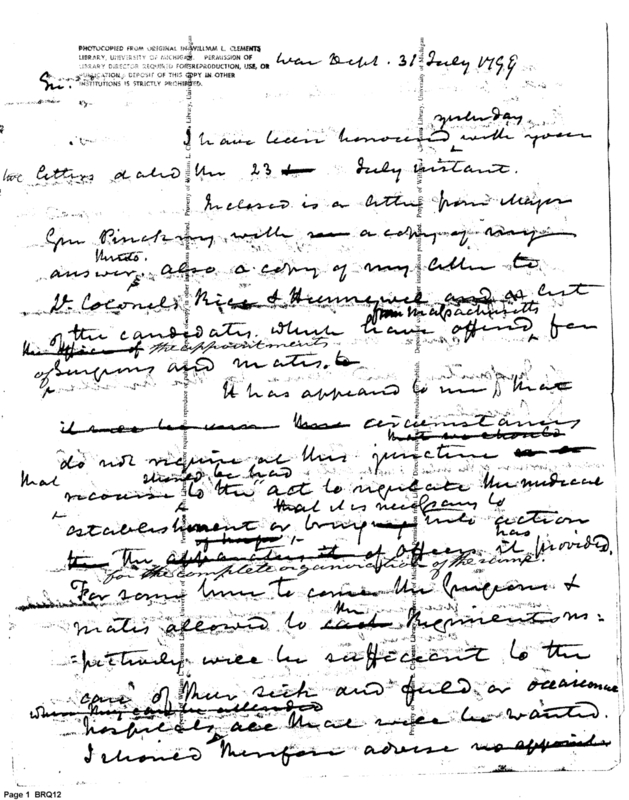 PHOTOCOPIED FROM ORIGINAL IN WILLIAM L. CLEMENTS
LIBRARY, UNIVERSITY OF MICHIGAN. PERMISSION OF
LIBRARY DIRECTOR REQUIRED FOR REPRODUCTION, USE, OR
PUBLICATION. DEPOSIT OF THIS COPY IN OTHER
INSTITUTIONS IS STRICTLY PROHIBITED.
War Dept. 31 July 1799
Sir.
yesterday
I have been honoured with your
two letters dated the 23 July instant.
Inclosed is a letter from Major
Gen Pinckney with a copy of my
answer, also a copy of my letter to
Lt Colonels Rice & Hunnewell and list
from Massachusetts
of the candidates which have offered for
the office of the appointments
of Surgeons and mates.
It has appeared to me that
circumstances
that we should
do not require at this juncture
that should be had
recourse to the act to regulate the medical
that it is necessary to
establishment or bring into action
has
the the of Officers it provided.
for the complete organization of the same.
For some time to come the Surgeons &
the
mates allowed to each Regiment res=
=pectively will be sufficient to the
care of their sick and field or occasional
when they can be attended
hospitals are that will be wanted.
I should therefore advise no
Page 1 BRQ12